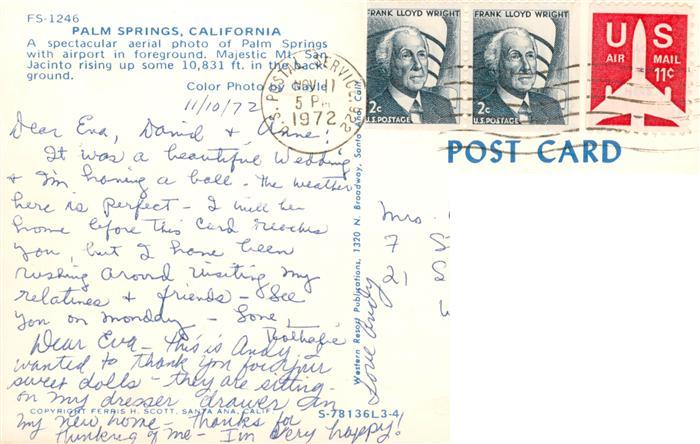 FS-1246
PALM SPRINGS, CALIFORNIA
A spectacular aerial photo of Palm Springs
with airport in foreground. Majestic Mt. San
Jacinto rising up some 10,831 ft. in the back-
ground.
Color Photo by Gayle
11/10/72
Dear Eva, David & Anne!
It was a beautiful Wedding
& I'm having a ball - the weather
here is perfect - I will be
home before this card reaches
you, but I have been
rushing around visiting my
relatives & friends - See
you on Monday - Love,
Dear Eva - this is Andy I
wanted to thank you for your
sweet dolls - they are sitting
on my dresser drawer in
my new home - thanks for
thinking of me - I'm very happy!
Love Andy
COPYRIGHT FERRIS H. SCOTT, SANTA ANA, CALIF.
S-78136L3-4
Western Resort Publications, 1320 N. Broadway, Santa Ana, Calif.
U.S. POSTAL SERVICE 922
NOV 11
5 PM
1972
FRANK LLOYD WRIGHT
2c
U.S. POSTAGE
FRANK LLOYD WRIGHT
2c
U.S. POSTAGE
US
AIR MAIL
11¢
POST CARD
Mrs.
7
21